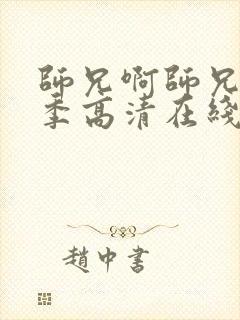 師兄啊師兄
季高清在綫
趙中書